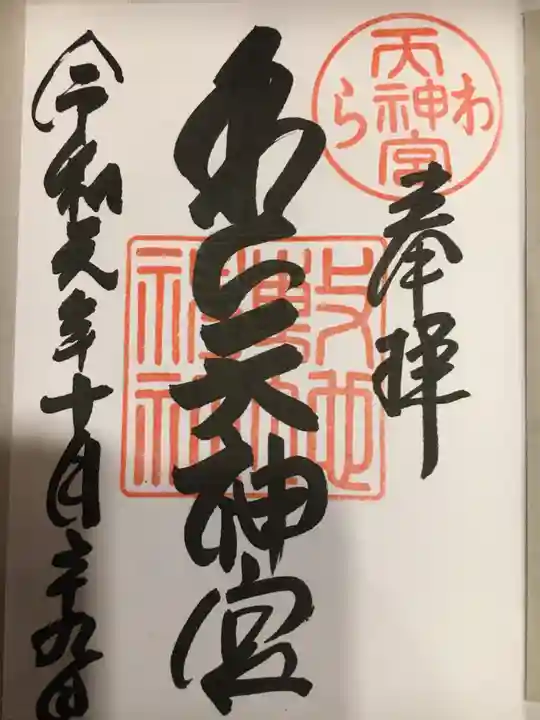 わら天神宮
奉拝
敷地神社
わら天神宮
令和元年十月二十九日